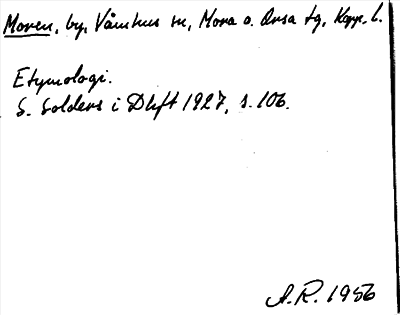 Moren, by, Våmhus sn, Mora o. Orsa tg, Kopp. l.
Etymologi.
S. Solders i Dhft 1927, s. 106.
A. R. 1956